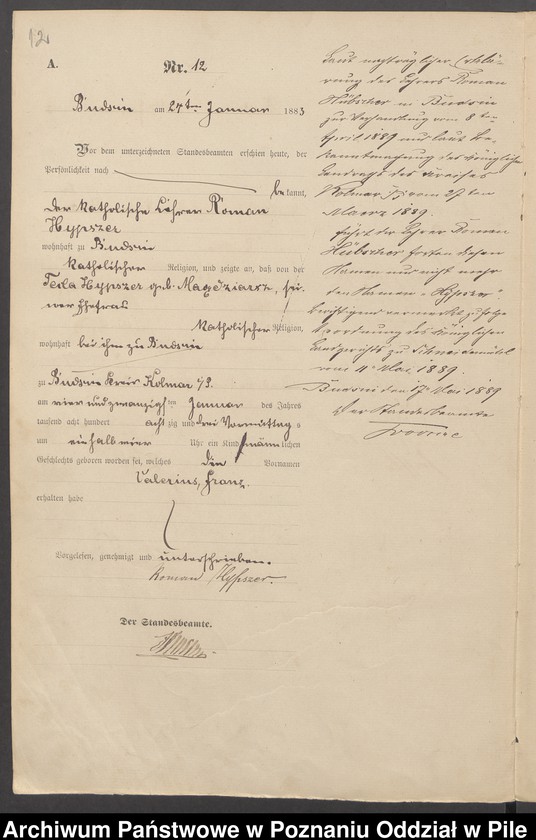 12.
A.
Nr. 12
Budsin am 27ten Januar 1883
Vor dem unterzeichneten Standesbeamten erschien heute, der
Persönlichkeit nach
bekannt,
der katholische Lehrer Roman
Hypszer
wohnhaft zu Budsin
katholischer Religion, und zeigte an, daß von der
Tekla Hypszer geb. Magdziarz, sei-
ner Ehefrau
katholischer Religion,
wohnhaft bei ihm zu Budsin
zu Budsin Kreis Kolmar i/P.
am vier und zwanzigsten Januar des Jahres
tausend acht hundert acht zig und drei Vormittag s
um ein halb vier Uhr ein Kind männlichen
Geschlechts geboren worden sei, welches den Vornamen
Valerius, Franz
erhalten habe
Vorgelesen, genehmigt und unterschrieben.
Roman Hypszer.
Der Standesbeamte.
Laut nachträglicher Erklä-
rung des Lehrers Roman
Hübscher in Budsin
zur Verhandlung vom 8ten
April 1889 und laut Be-
kanntmachung des Königlichen
Landraths des Kreises
Kolmar i/P. vom 27ten
Maerz 1889.
führt der Lehrer Roman
Hübscher fortan diesen
Namen und nicht mehr
den Namen "Hypszer"
vermerkt zufolge
Verordnung des Königlichen
Landgerichts zu Schneidemühl
vom 4. Mai 1889.
Budsin den 17. Mai 1889
Der Standesbeamte
Archiwum Państwowe w Poznaniu Oddział w Pile